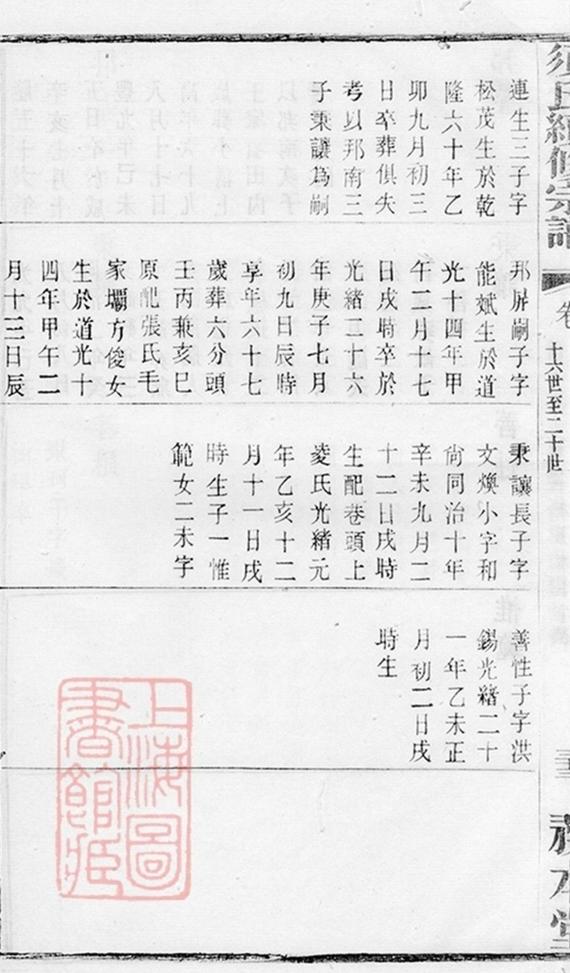 連生三子字
松茂生於乾
隆六十年乙
卯九月初三
日卒葬俱失
考以邦南三
子秉讓為嗣
邦屏嗣子字
能斌生於道
光十四年甲
午二月十七
日戌時卒於
光緒二十六
年庚子七月
初九日辰時
享年六十七
歲葬六分頭
壬丙兼亥巳
原配張氏毛
家壩方俊女
生於道光十
四年甲午二
月十三日辰
秉讓長子字
文煥小字和
尙同治十年
辛未九月二
十二日戌時
生配巷頭上
凌氏光緒元
年乙亥十二
月十一日戌
時生子一惟
範女二未字
善性子字洪
錫光緒二十
一年乙未正
月初二日戌
時生
宗譜
卷
十六世至二十世
上海圖
書館藏